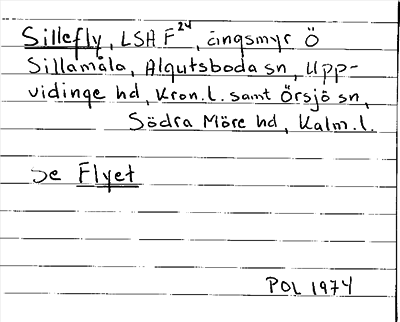 Sillefly, LSH F²⁴, ängsmyr Ö
Sillamåla, Algutsboda sn, Upp-
vidinge hd, Kron.l. samt Örsjö sn,
Södra Möre hd, Kalm.l.
Se Flyet
POL 1974